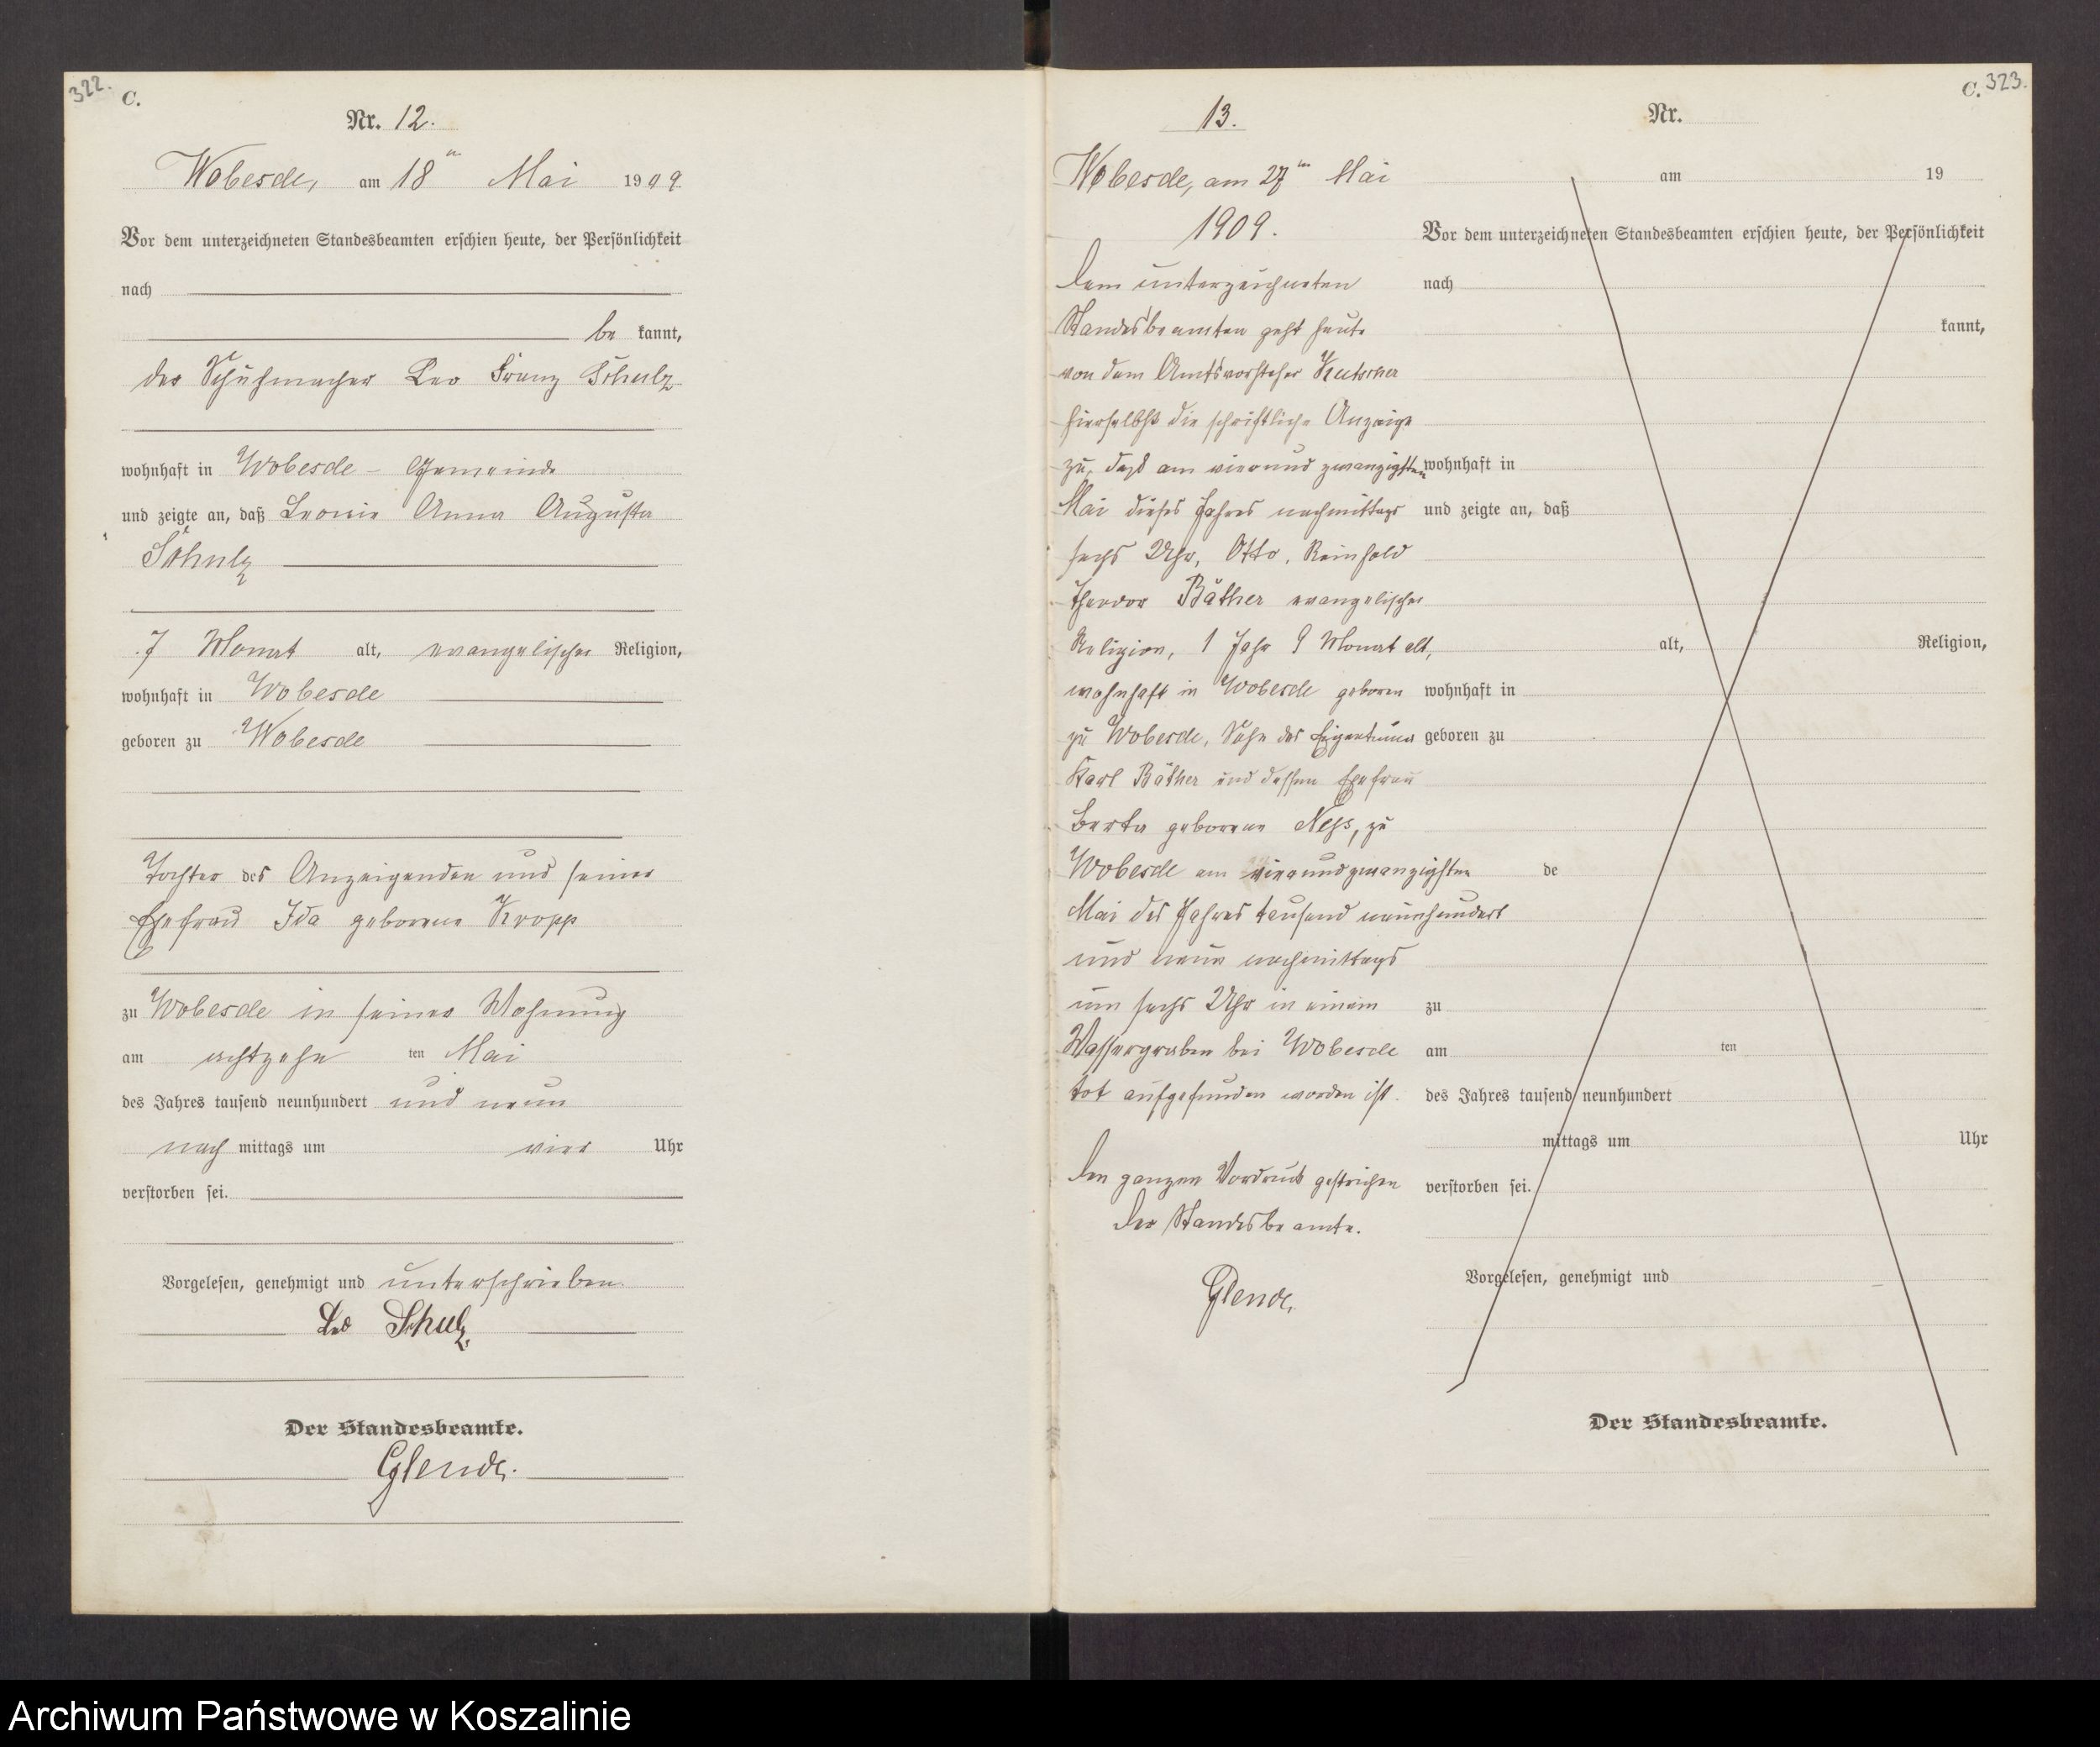 322.
C.
Nr. 12.
Wobesde, am 18ten Mai 1909
Vor dem unterzeichneten Standesbeamten erschien heute, der Persönlichkeit
nach
be kannt,
der Schuhmacher Leo Franz Schulz
wohnhaft in Wobesde - Gemeinde
und zeigte an, daß Leonie Anna Augusta
Schulz
7 Monat alt, evangelischer Religion,
wohnhaft in Wobesde
geboren zu Wobesde
Tochter des Anzeigenden und seiner
Ehefrau Ida geborene Kropp
zu Wobesde in seiner Wohnung
am achtzehn ten Mai
des Jahres tausend neunhundert und neun
nach mittags um vier Uhr
verstorben sei.
Vorgelesen, genehmigt und unterschrieben
Leo Schulz.
Der Standesbeamte.
Glende.
C. 323.
13.
Wobesde, am 27ten Mai
1909.
Dem unterzeichneten
Standesbeamten geht heute
von dem Amtsvorsteher Kutscher
hierselbst die schriftliche Anzeige
zu, daß am vierundzwanzigsten
Mai dieses Jahres nachmittags
sechs Uhr, Otto, Reinhold
Theodor Bäther evangelischer
Religion, 1 Jahr 9 Monat alt,
wohnhaft in Wobesde geboren
zu Wobesde, Sohn des Eigentümer
Karl Bäther und dessen Ehefrau
Berta geborene Ness, zu
Wobesde am vierundzwanzigsten
Mai des Jahres tausend neunhundert
und neun nachmittags
um sechs Uhr in einem
Wassergraben bei Wobesde
tot aufgefunden worden ist.
Den ganzen Vordruck gestrichen
Der Standesbeamte.
Glende.
Nr.
am 19
Vor dem unterzeichneten Standesbeamten erschien heute, der Persönlichkeit
nach
kannt,
wohnhaft in
und zeigte an, daß
alt, Religion,
wohnhaft in
geboren zu
de
zu
am ten
des Jahres tausend neunhundert
mittags um Uhr
verstorben sei.
Vorgelesen, genehmigt und
Der Standesbeamte.
Archiwum Państwowe w Koszalinie